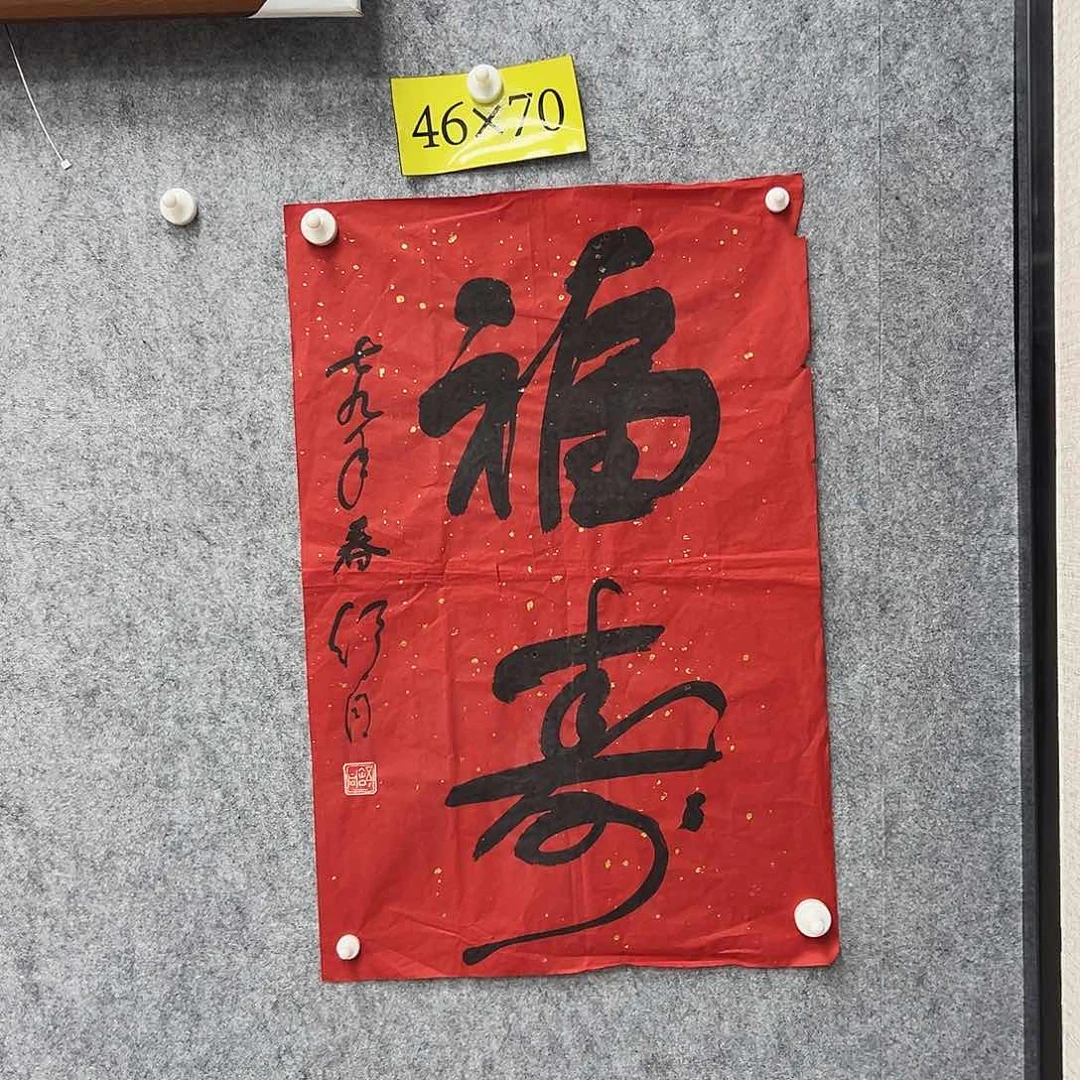 46×70
福寿
七九年春